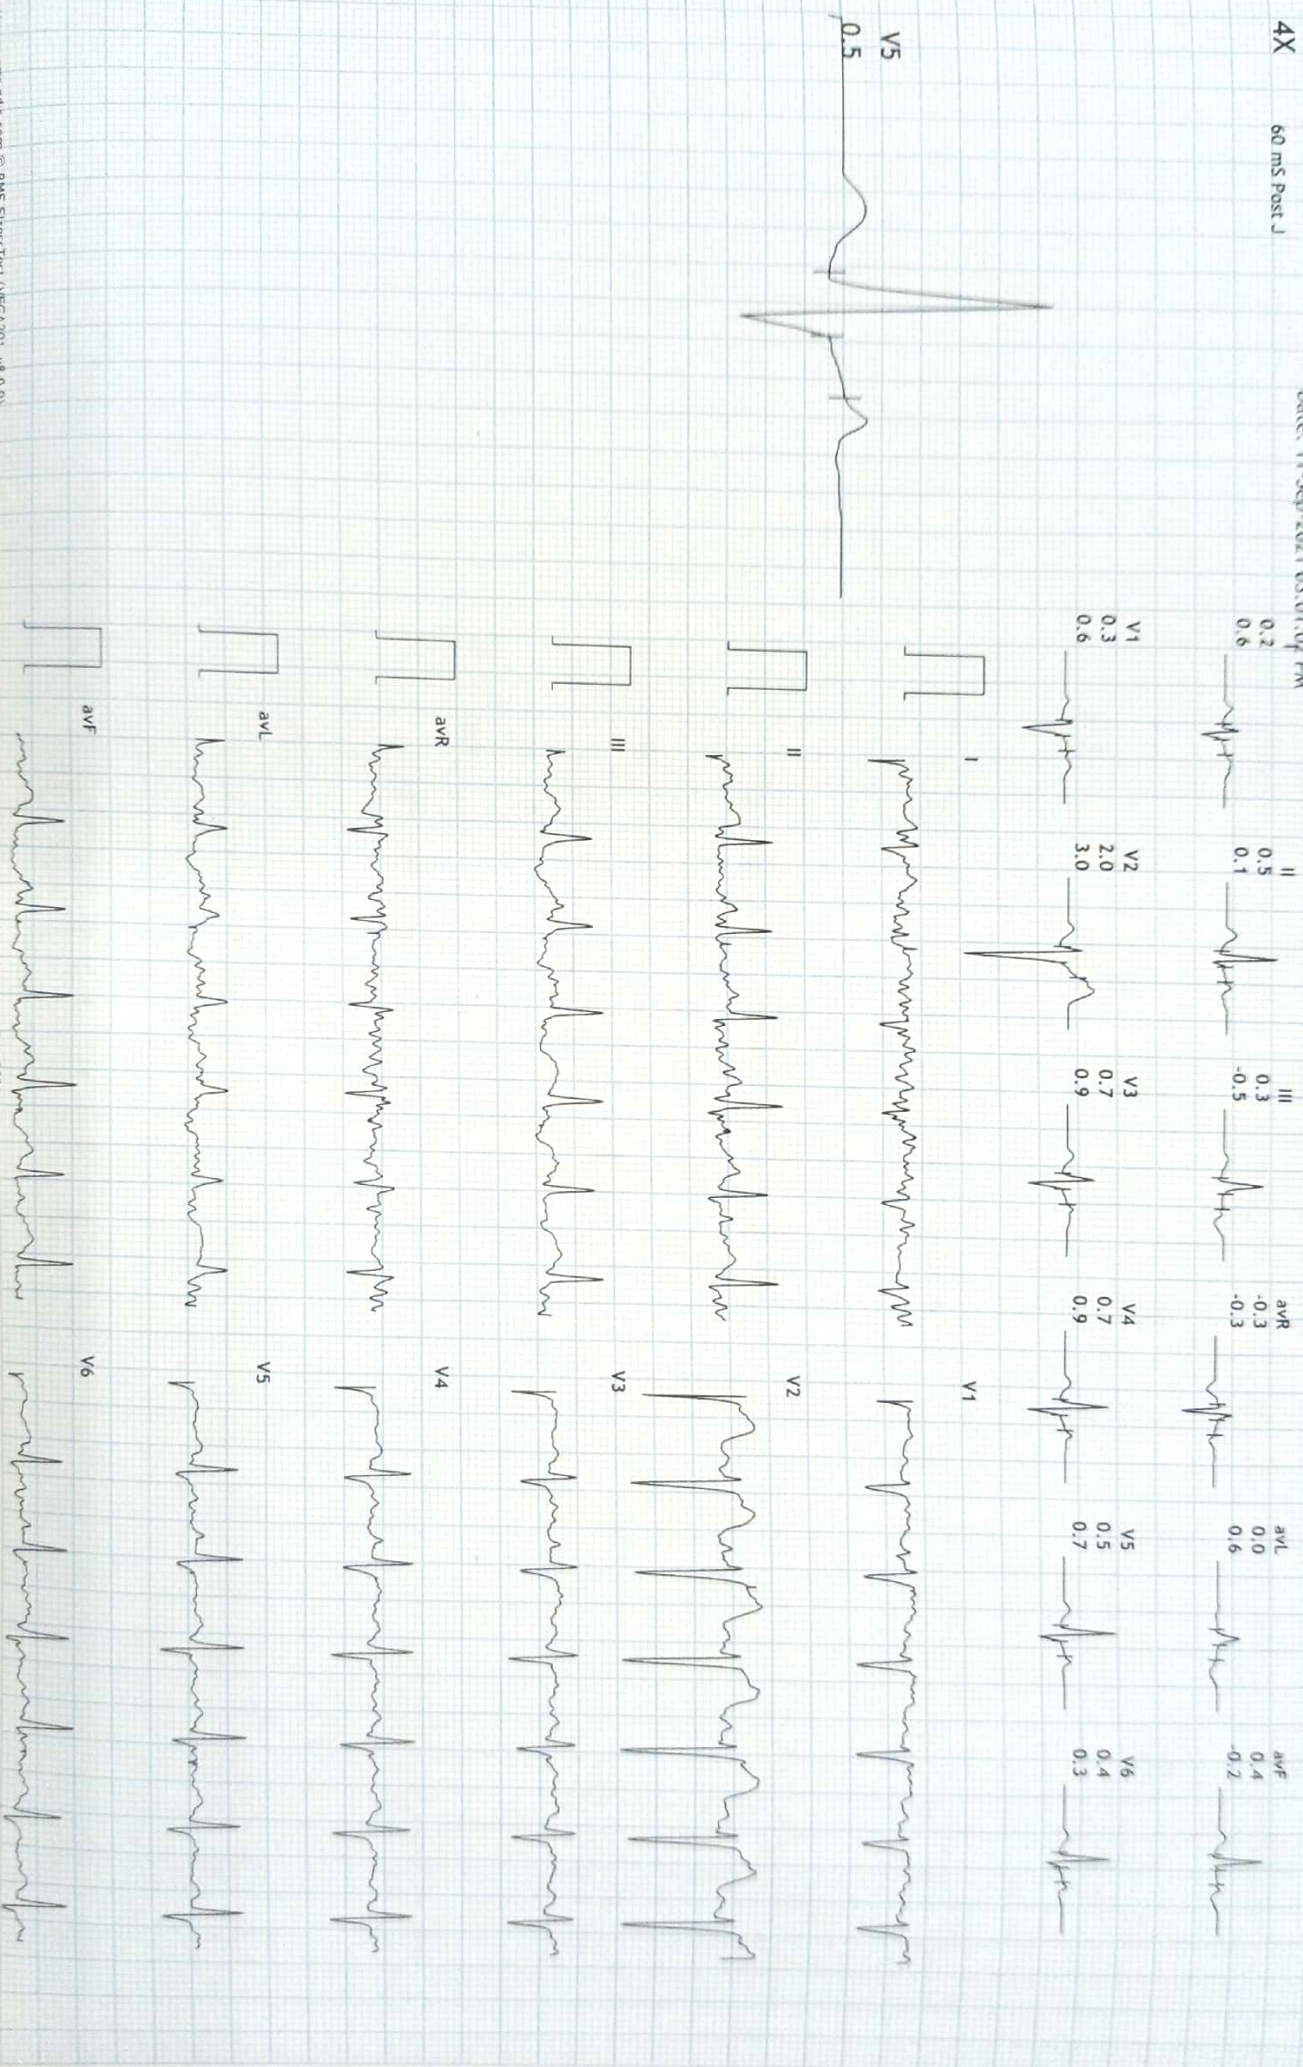 4X
60 mS Post J
V5
0.5
0.2
0.6
II
0.5
0.1
III
0.3
-0.5
avR
-0.3
-0.3
avL
0.0
0.6
avF
0.4
-0.2
V1
0.3
0.6
V2
2.0
3.0
V3
0.7
0.9
V4
0.7
0.9
V5
0.5
0.7
V6
0.4
0.3
I
V1
II
V2
III
V3
avR
V4
avL
V5
avF
V6